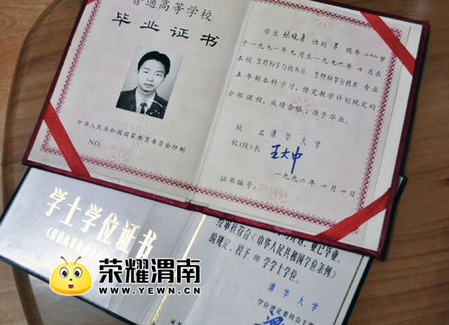 普通高等学校
毕业证书
中华人民共和国国家教育委员会印制
NO.
学生 张晓勇 性别 男 现年 二十八岁
于一九九一年九月至一九九六年七月在
本校 生物科学与技术系 生物科学与技术 专业
五年制本科学习,修完教学计划规定的
全部课程,成绩合格,准予毕业。
校名 清华大学
校(院)长: 王大中
一九九六年七月十日
证书编号:
学士学位证书
经审核符合《中华人民共和国学位条例》
的规定,授予理学学士学位。
清华大学
学位评定委员会主
荣耀渭南
WWW.YEWN.CN